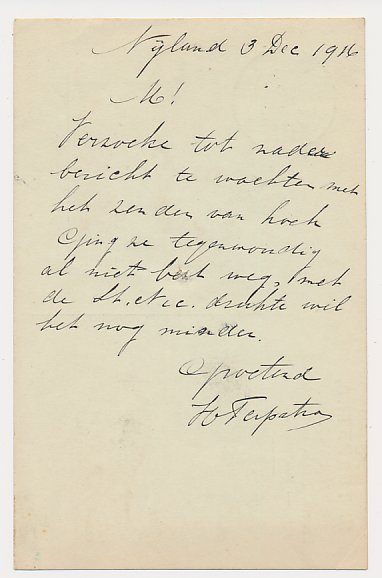 Nijland 3 Dec 1916
M!
Verzoeke tot nader
bericht te wachten met
het zenden van koek
Ging ze tegenwoordig
al niet best weg, met
de St. Nic. drukte wil
het nog minder.
Groetend
H Terpstra